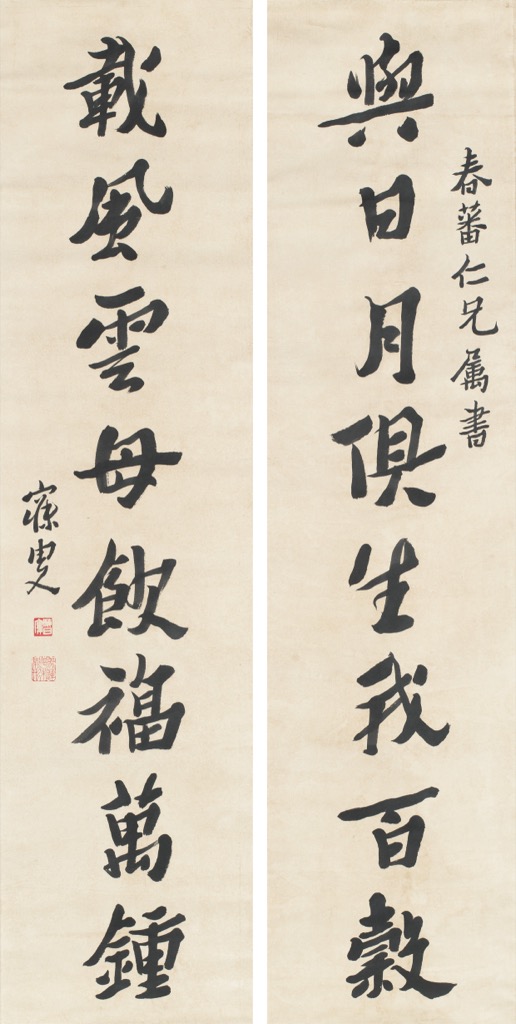 春蕃仁兄属書
與日月俱生我百穀
載風雲母飲福萬鍾
寐叟